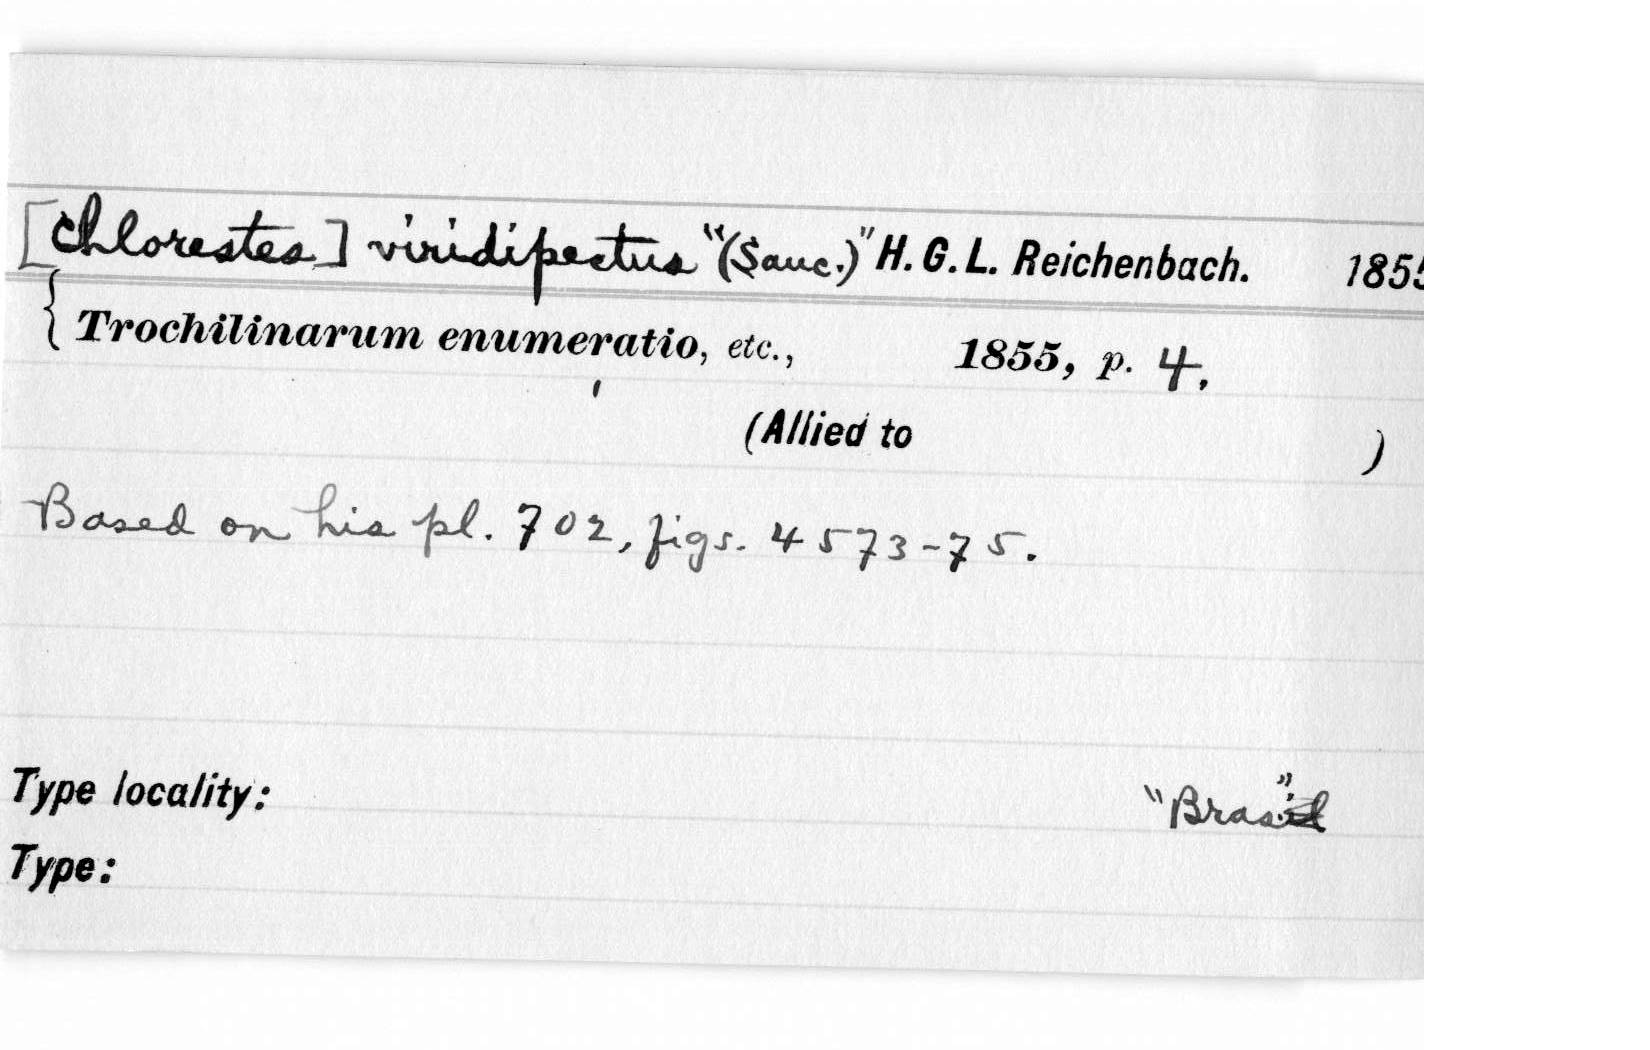 [Chlorestes] viridipectus "(Sauc.)" H. G. L. Reichenbach. 1855
{ Trochilinarum enumeratio, etc., 1855, p. 4.
(Allied to )
Based on his pl. 702, figs. 4573-75.
Type locality: "Bras."
Type: